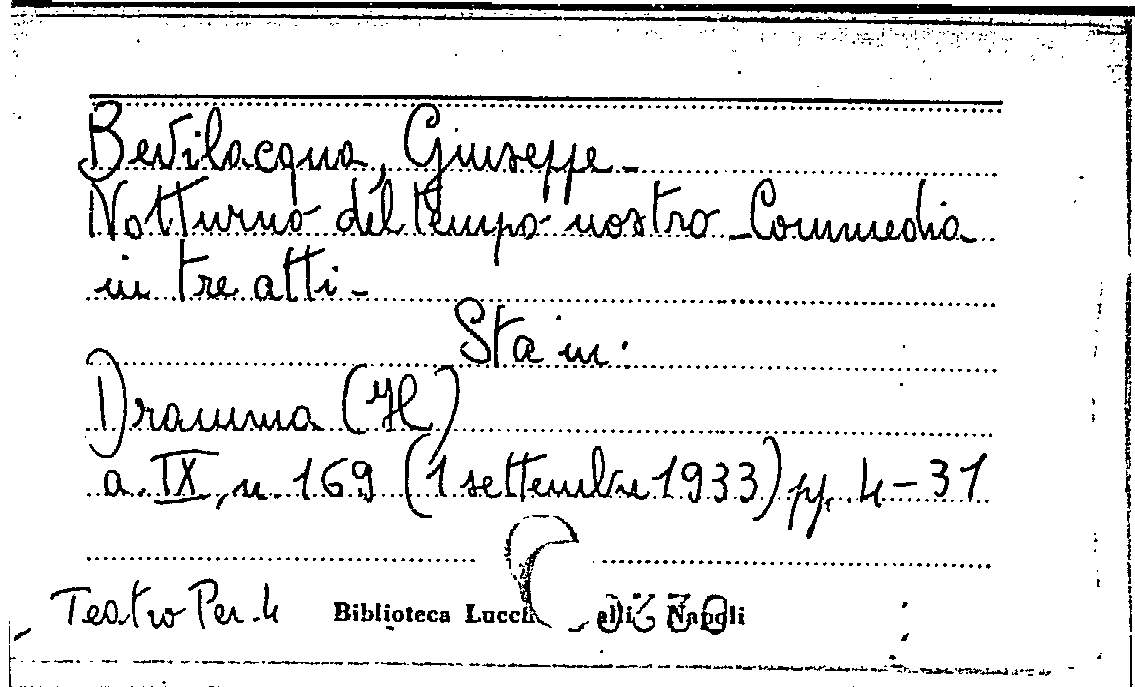 Bevilacqua, Giuseppe -
Notturno del tempo nostro - Commedia
in tre atti -
Sta in:
Dramma (Il)
a. IX, n. 169 (1 settembre 1933) pp. 4-31
Teatro Per. 4 Biblioteca Lucch alli Napoli